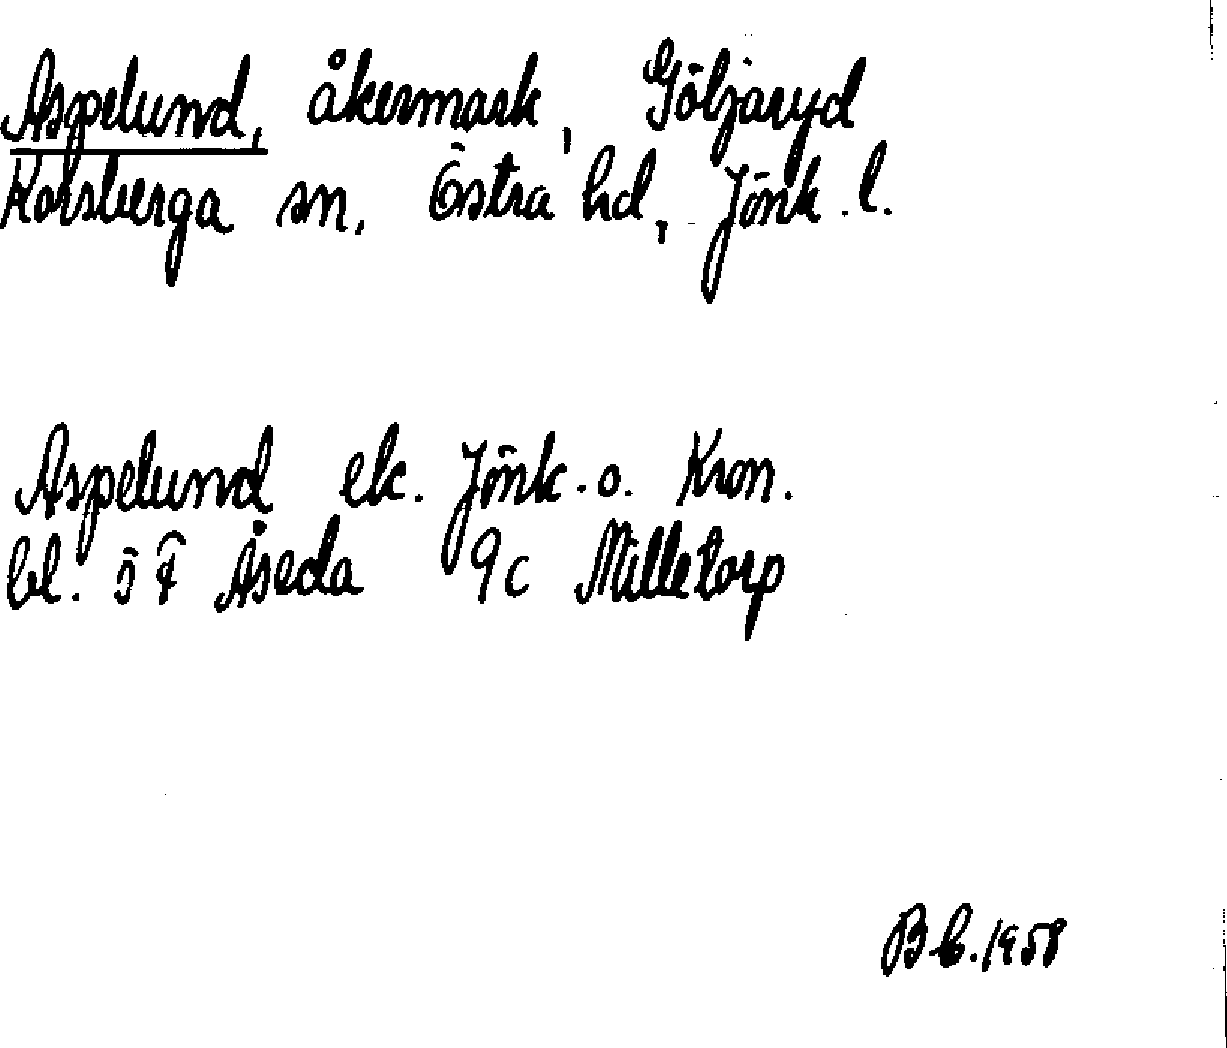 Aspelund, åkermark, Göljaryd
Korsberga sn, Östra hd, Jönk. l.
Aspelund ek. Jönk. o. Kron.
bl. 5 F Åseda 9c Milletorp
B.C. 1958